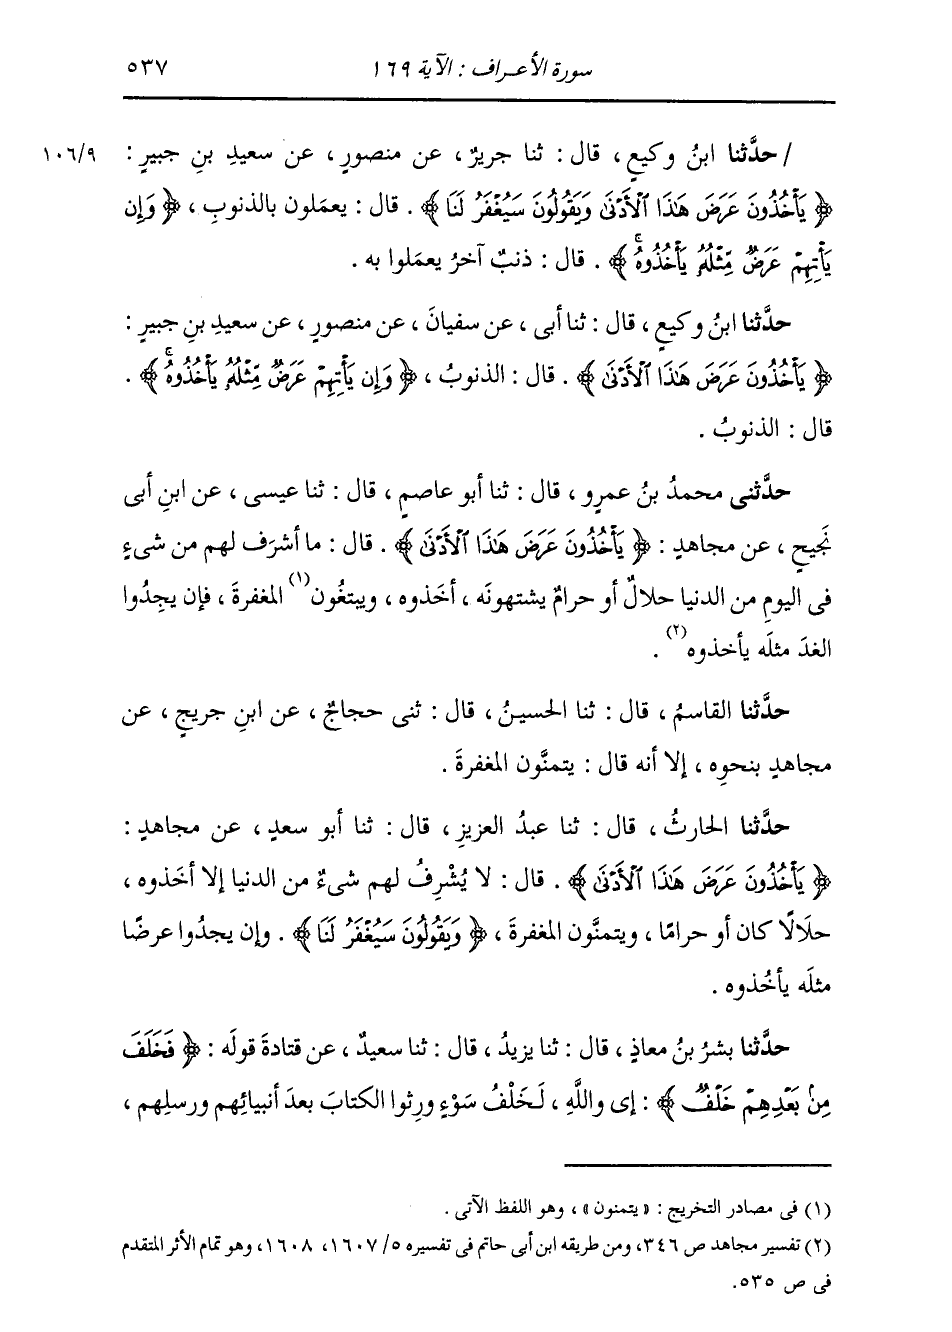 سورة الأعراف : الآية ١٦٩ ٥٣٧
/ حدَّثنا ابنُ وكيعٍ ، قال : ثنا جريرٌ ، عن منصورٍ ، عن سعيدِ بنِ جبيرٍ : ١٠٦/٩
﴿ يَأْخُذُونَ عَرَضَ هَٰذَا ٱلْأَدْنَىٰ وَيَقُولُونَ سَيُغْفَرُ لَنَا ﴾ . قال : يعمَلون بالذنوبِ ، ﴿ وَإِن
يَأْتِهِمْ عَرَضٌ مِّثْلُهُۥ يَأْخُذُوهُۚ ﴾ . قال : ذنبٌ آخرُ يعمَلوا به .
حدَّثنا ابنُ وكيعٍ ، قال : ثنا أبى ، عن سفيانَ ، عن منصورٍ ، عن سعيدِ بنِ جبيرٍ :
﴿ يَأْخُذُونَ عَرَضَ هَٰذَا ٱلْأَدْنَىٰ ﴾ . قال : الذنوبُ ، ﴿ وَإِن يَأْتِهِمْ عَرَضٌ مِّثْلُهُۥ يَأْخُذُوهُۚ ﴾ .
قال : الذنوبُ .
حدَّثنى محمدُ بنُ عمرٍو ، قال : ثنا أبو عاصمٍ ، قال : ثنا عيسى ، عن ابنِ أبى
نَجيحٍ ، عن مجاهدٍ : ﴿ يَأْخُذُونَ عَرَضَ هَٰذَا ٱلْأَدْنَىٰ ﴾ . قال : ما أشرَف لهم من شىءٍ
فى اليومِ من الدنيا حلالٌ أو حرامٌ يشتهونَه ، أخَذوه ، ويبتغُون(١) المغفرةَ ، فإن يجِدُوا
الغدَ مثلَه يأخذوه(٢) .
حدَّثنا القاسمُ ، قال : ثنا الحسينُ ، قال : ثنى حجاجٌ ، عن ابنِ جريجٍ ، عن
مجاهدٍ بنحوِه ، إلا أنه قال : يتمنَّون المغفرةَ .
حدَّثنا الحارثُ ، قال : ثنا عبدُ العزيزِ ، قال : ثنا أبو سعدٍ ، عن مجاهدٍ :
﴿ يَأْخُذُونَ عَرَضَ هَٰذَا ٱلْأَدْنَىٰ ﴾ . قال : لا يُشْرِفُ لهم شىءٌ من الدنيا إلا أخَذوه ،
حلالًا كان أو حرامًا ، ويتمنَّون المغفرةَ ، ﴿ وَيَقُولُونَ سَيُغْفَرُ لَنَا ﴾ . وإن يجدُوا عرضًا
مثلَه يأخُذوه .
حدَّثنا بشرُ بنُ معاذٍ ، قال : ثنا يزيدُ ، قال : ثنا سعيدٌ ، عن قتادةَ قولَه : ﴿ فَخَلَفَ
مِنۢ بَعْدِهِمْ خَلْفٌ ﴾ : إى واللَّهِ ، لَخَلْفُ سَوْءٍ ورِثوا الكتابَ بعدَ أنبيائِهم ورسلِهم ،
(١) فى مصادر التخريج : « يتمنون » ، وهو اللفظ الآتى .
(٢) تفسير مجاهد ص ٣٤٦، ومن طريقه ابن أبى حاتم فى تفسيره ١٦٠٧/٥، ١٦٠٨، وهو تمام الأثر المتقدم
فى ص ٥٣٥.